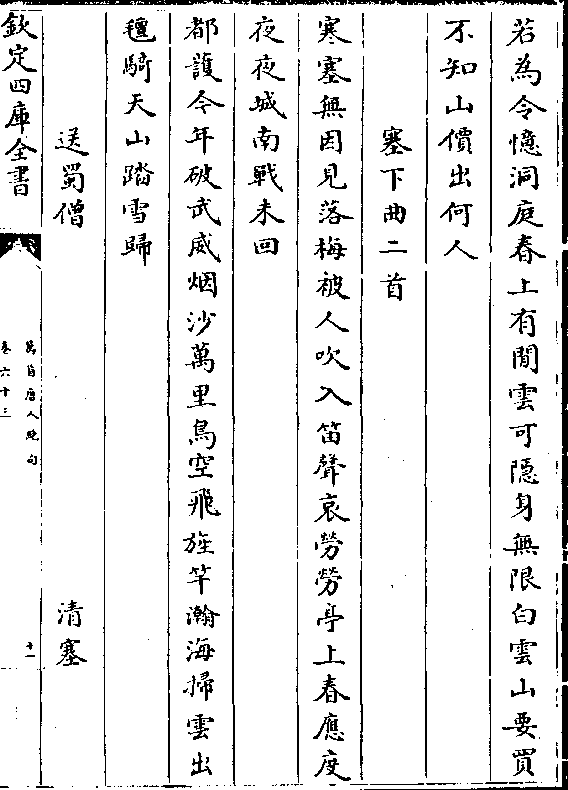 若為令憶洞庭春上有閒雲可隱身無限白雲山要買
不知山價出何人
塞下曲二首
寒塞無因見落梅被人吹入笛聲哀勞勞亭上春應度
夜夜城南戰未回
都護今年破武威烟沙萬里鳥空飛旌竿瀚海掃雲出
氊騎天山踏雪歸
送蜀僧 清塞
欽定四庫全書
萬首唐人絶句
卷六十三
十一